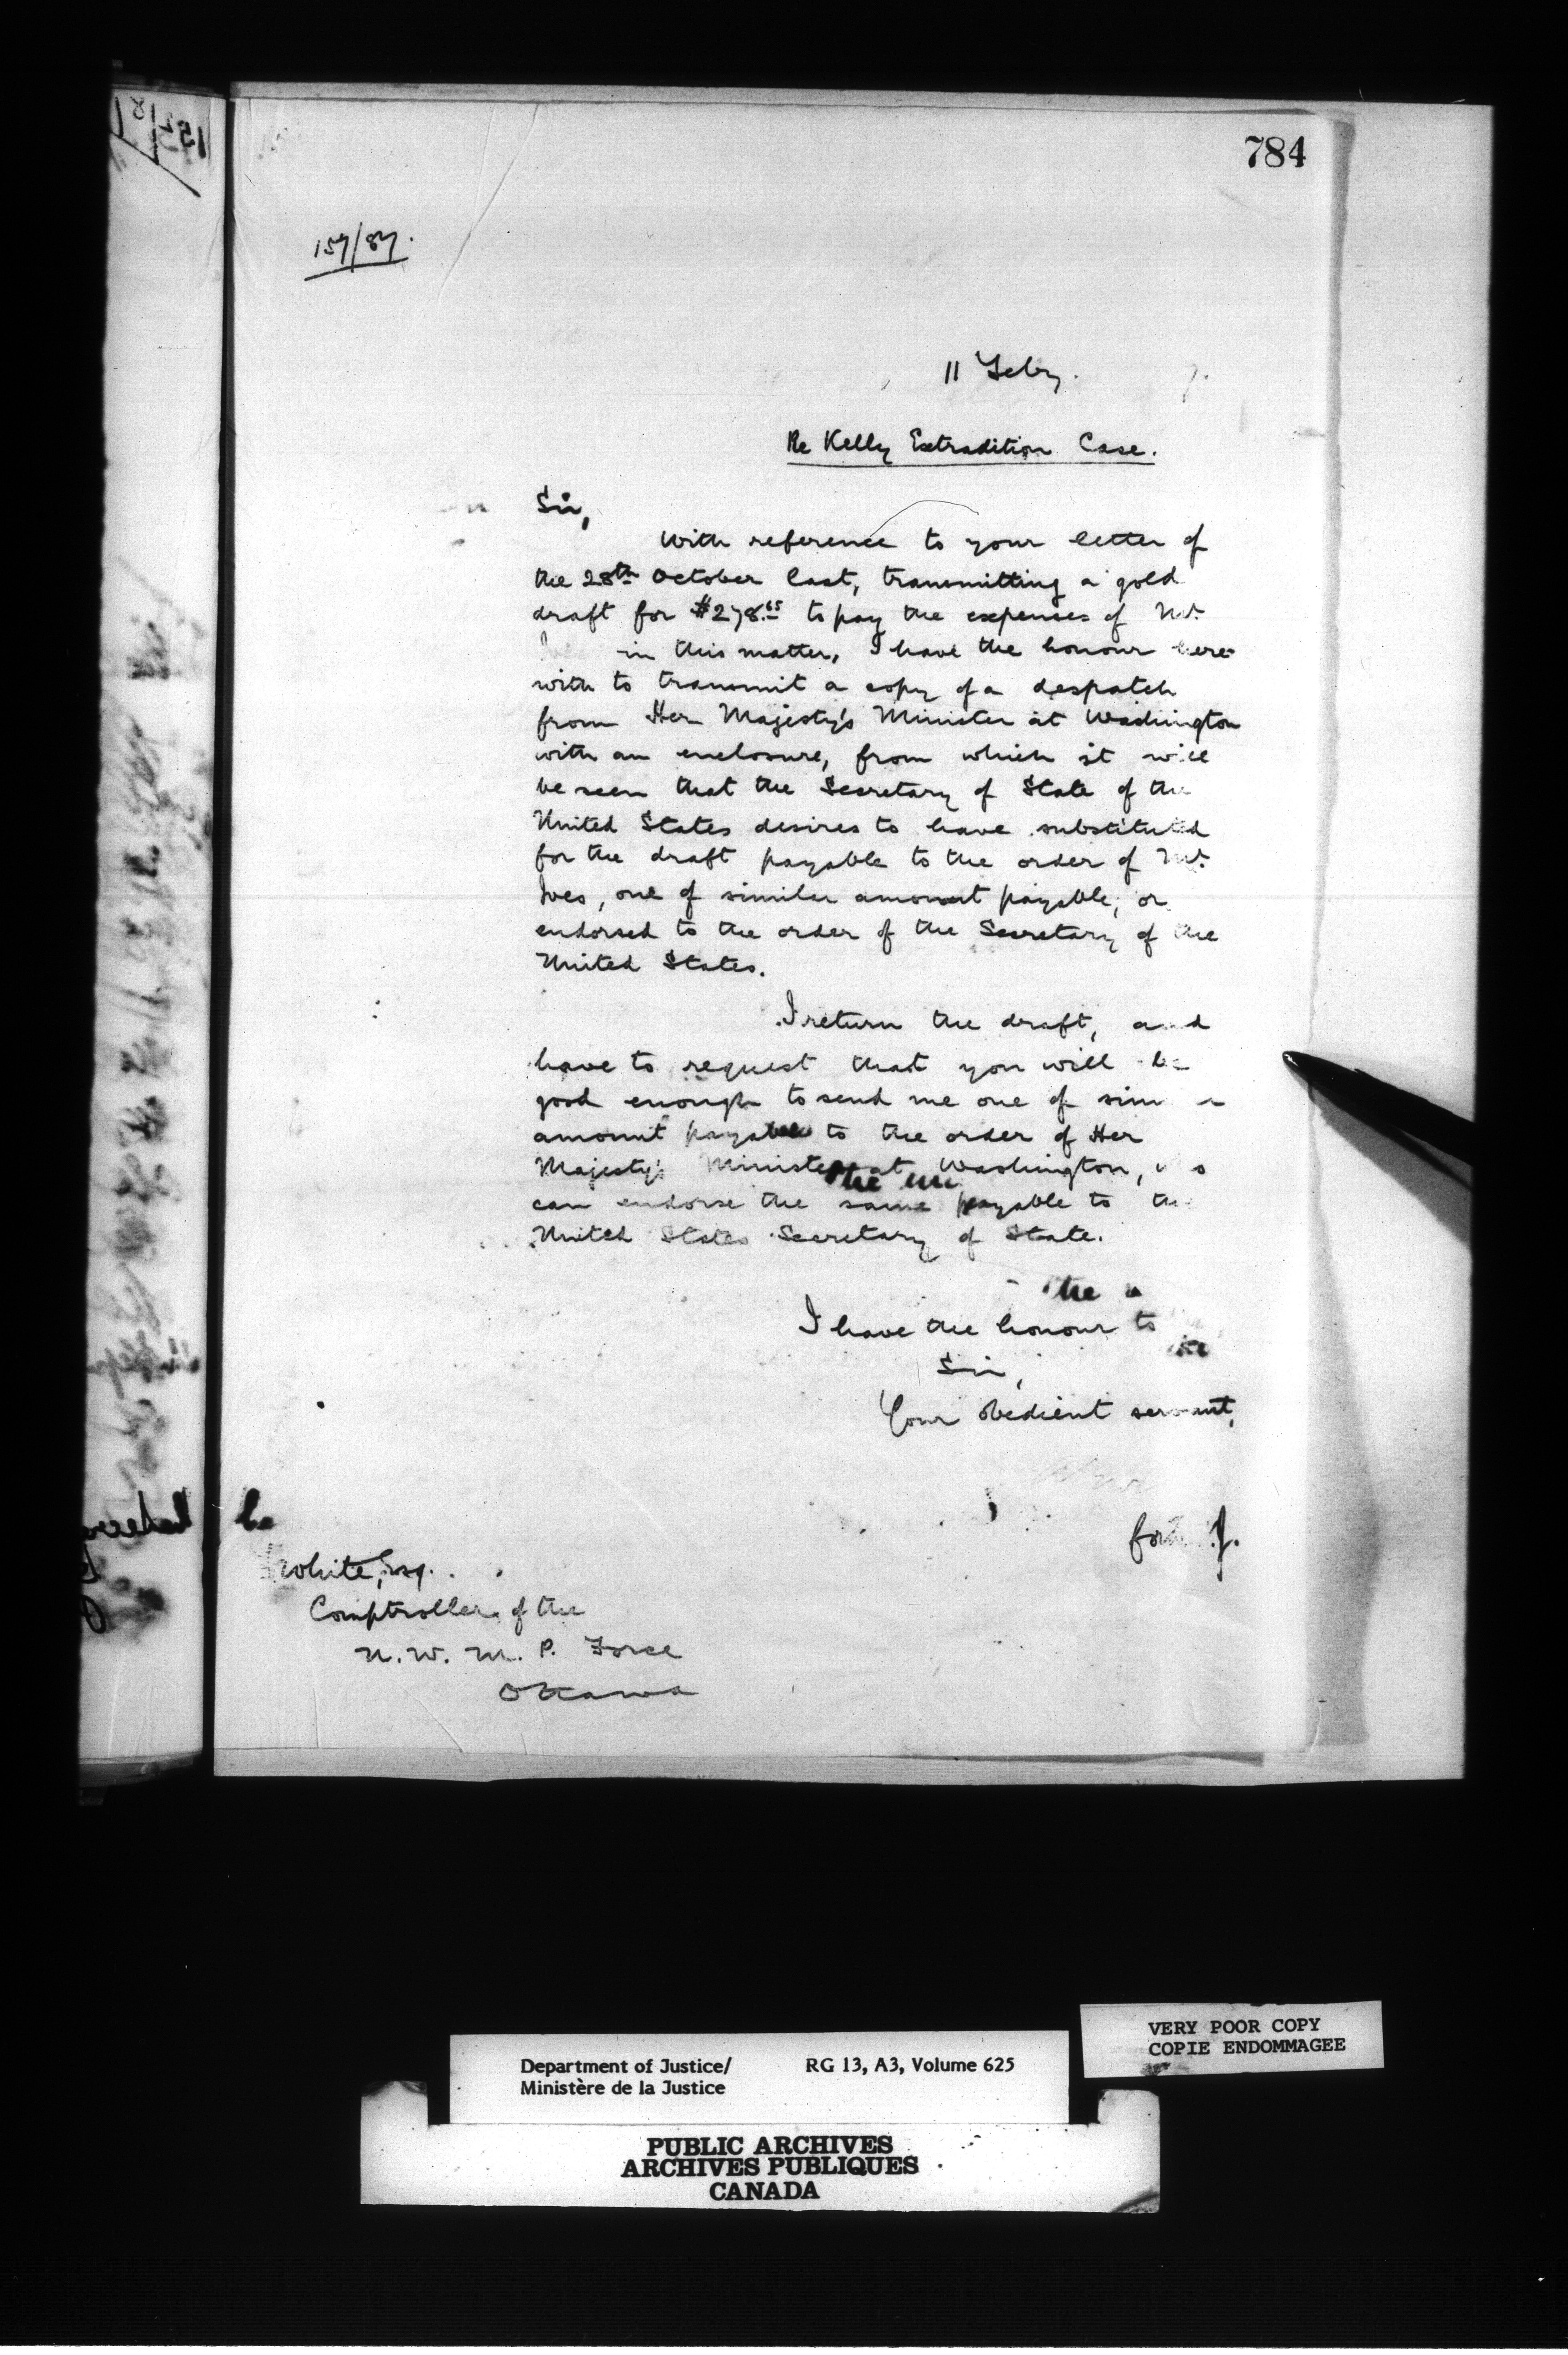 784
157/87.
11 Feby. 7.
Re Kelly Extradition Case.
Sir,
With reference to your letter of
the 28th October last, transmitting a gold
draft for $278.65 to pay the expenses of Mr.
in this matter, I have the honour here-
with to transmit a copy of a despatch
from Her Majesty's Minister at Washington
with an enclosure, from which it will
be seen that the Secretary of State of the
United States desires to have substituted
for the draft payable to the order of Mr.
Ives, one of similar amount payable, or
endorsed to the order of the Secretary of the
United States.
I return the draft, and
have to request that you will be
good enough to send me one of
amount payable to the order of Her
Majesty's Minister at Washington,
can endorse the same payable to the
United States Secretary of State.
I have the honour to
Sir,
Your obedient servant,
White, Esq.
Comptroller of the
N. W. M. P. Force
Ottawa
VERY POOR COPY
COPIE ENDOMMAGEE
Department of Justice/ RG 13, A3, Volume 625
Ministère de la Justice
PUBLIC ARCHIVES
ARCHIVES PUBLIQUES
CANADA